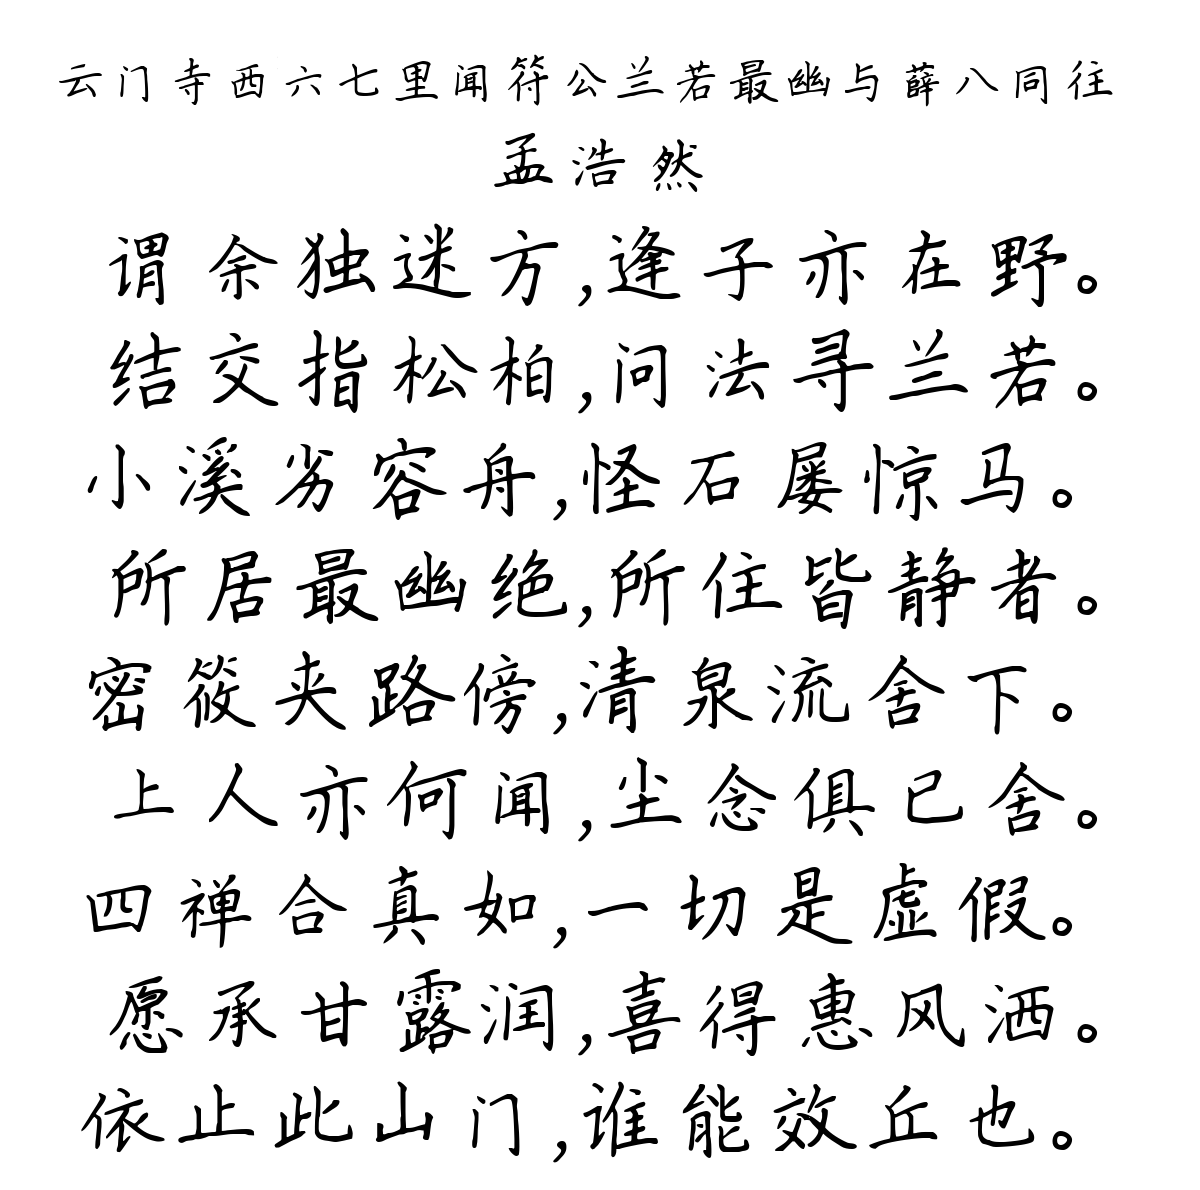 云门寺西六七里闻符公兰若最幽与薛八同往
孟浩然
谓余独迷方,逢子亦在野。
结交指松柏,问法寻兰若。
小溪劣容舟,怪石屡惊马。
所居最幽绝,所住皆静者。
密筱夹路傍,清泉流舍下。
上人亦何闻,尘念俱已舍。
四禅合真如,一切是虚假。
愿承甘露润,喜得惠风洒。
依止此山门,谁能效丘也。